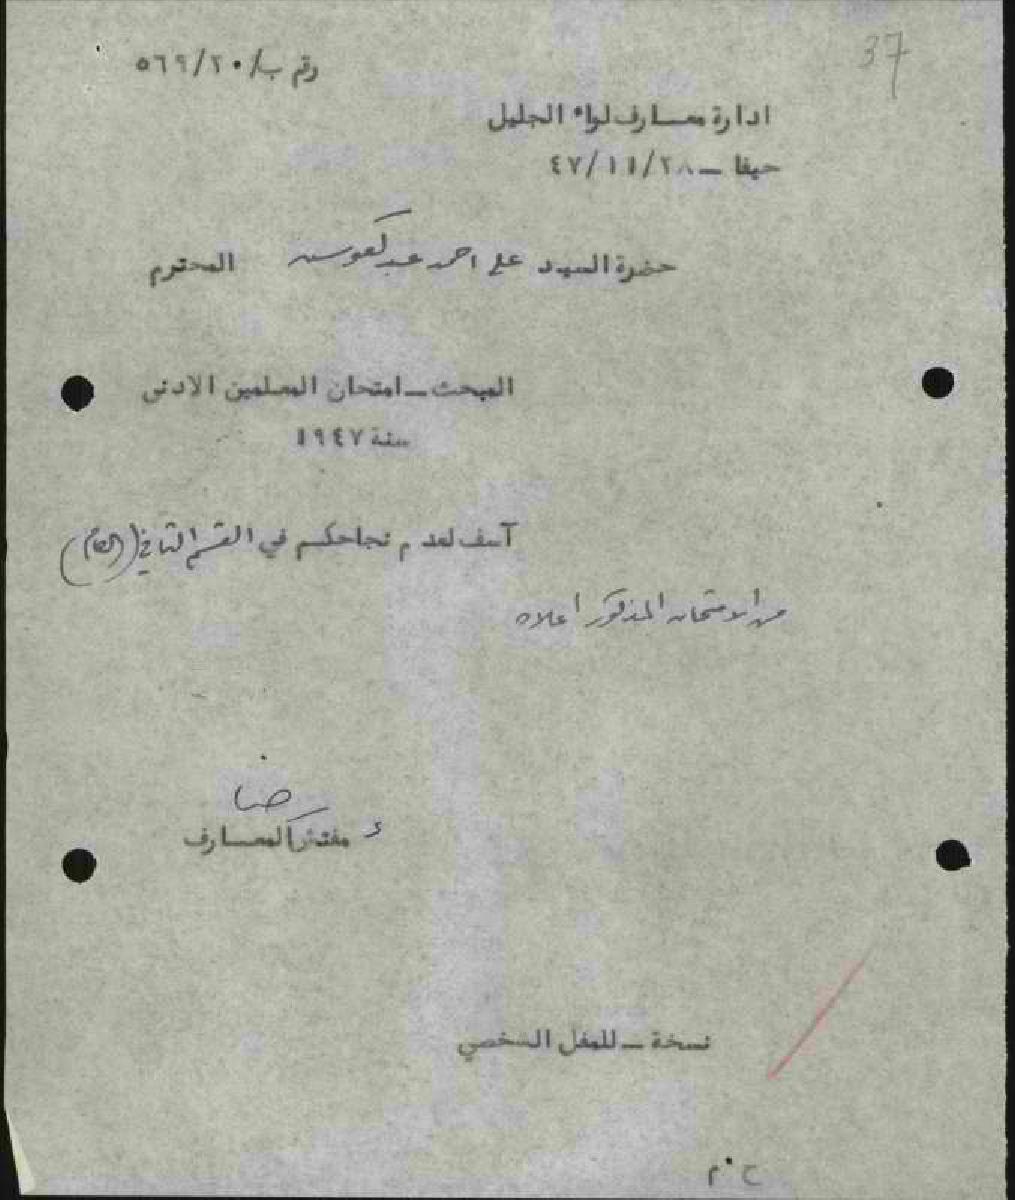 37
رقم ب/٥٦٩/٢٠
ادارة معارف لواء الجليل
حيفا – ٤٧/١١/٢٨
حضرة السيد علي احمد عبد المحترم
المبحث – امتحان المعلمين الادنى
سنة ١٩٤٧
آسف لعدم نجاحكم في القسم الثاني (العام)
من الامتحان المذكور اعلاه
رضا
مفتش المعارف
نسخة – للملف الشخصي
ح٠م